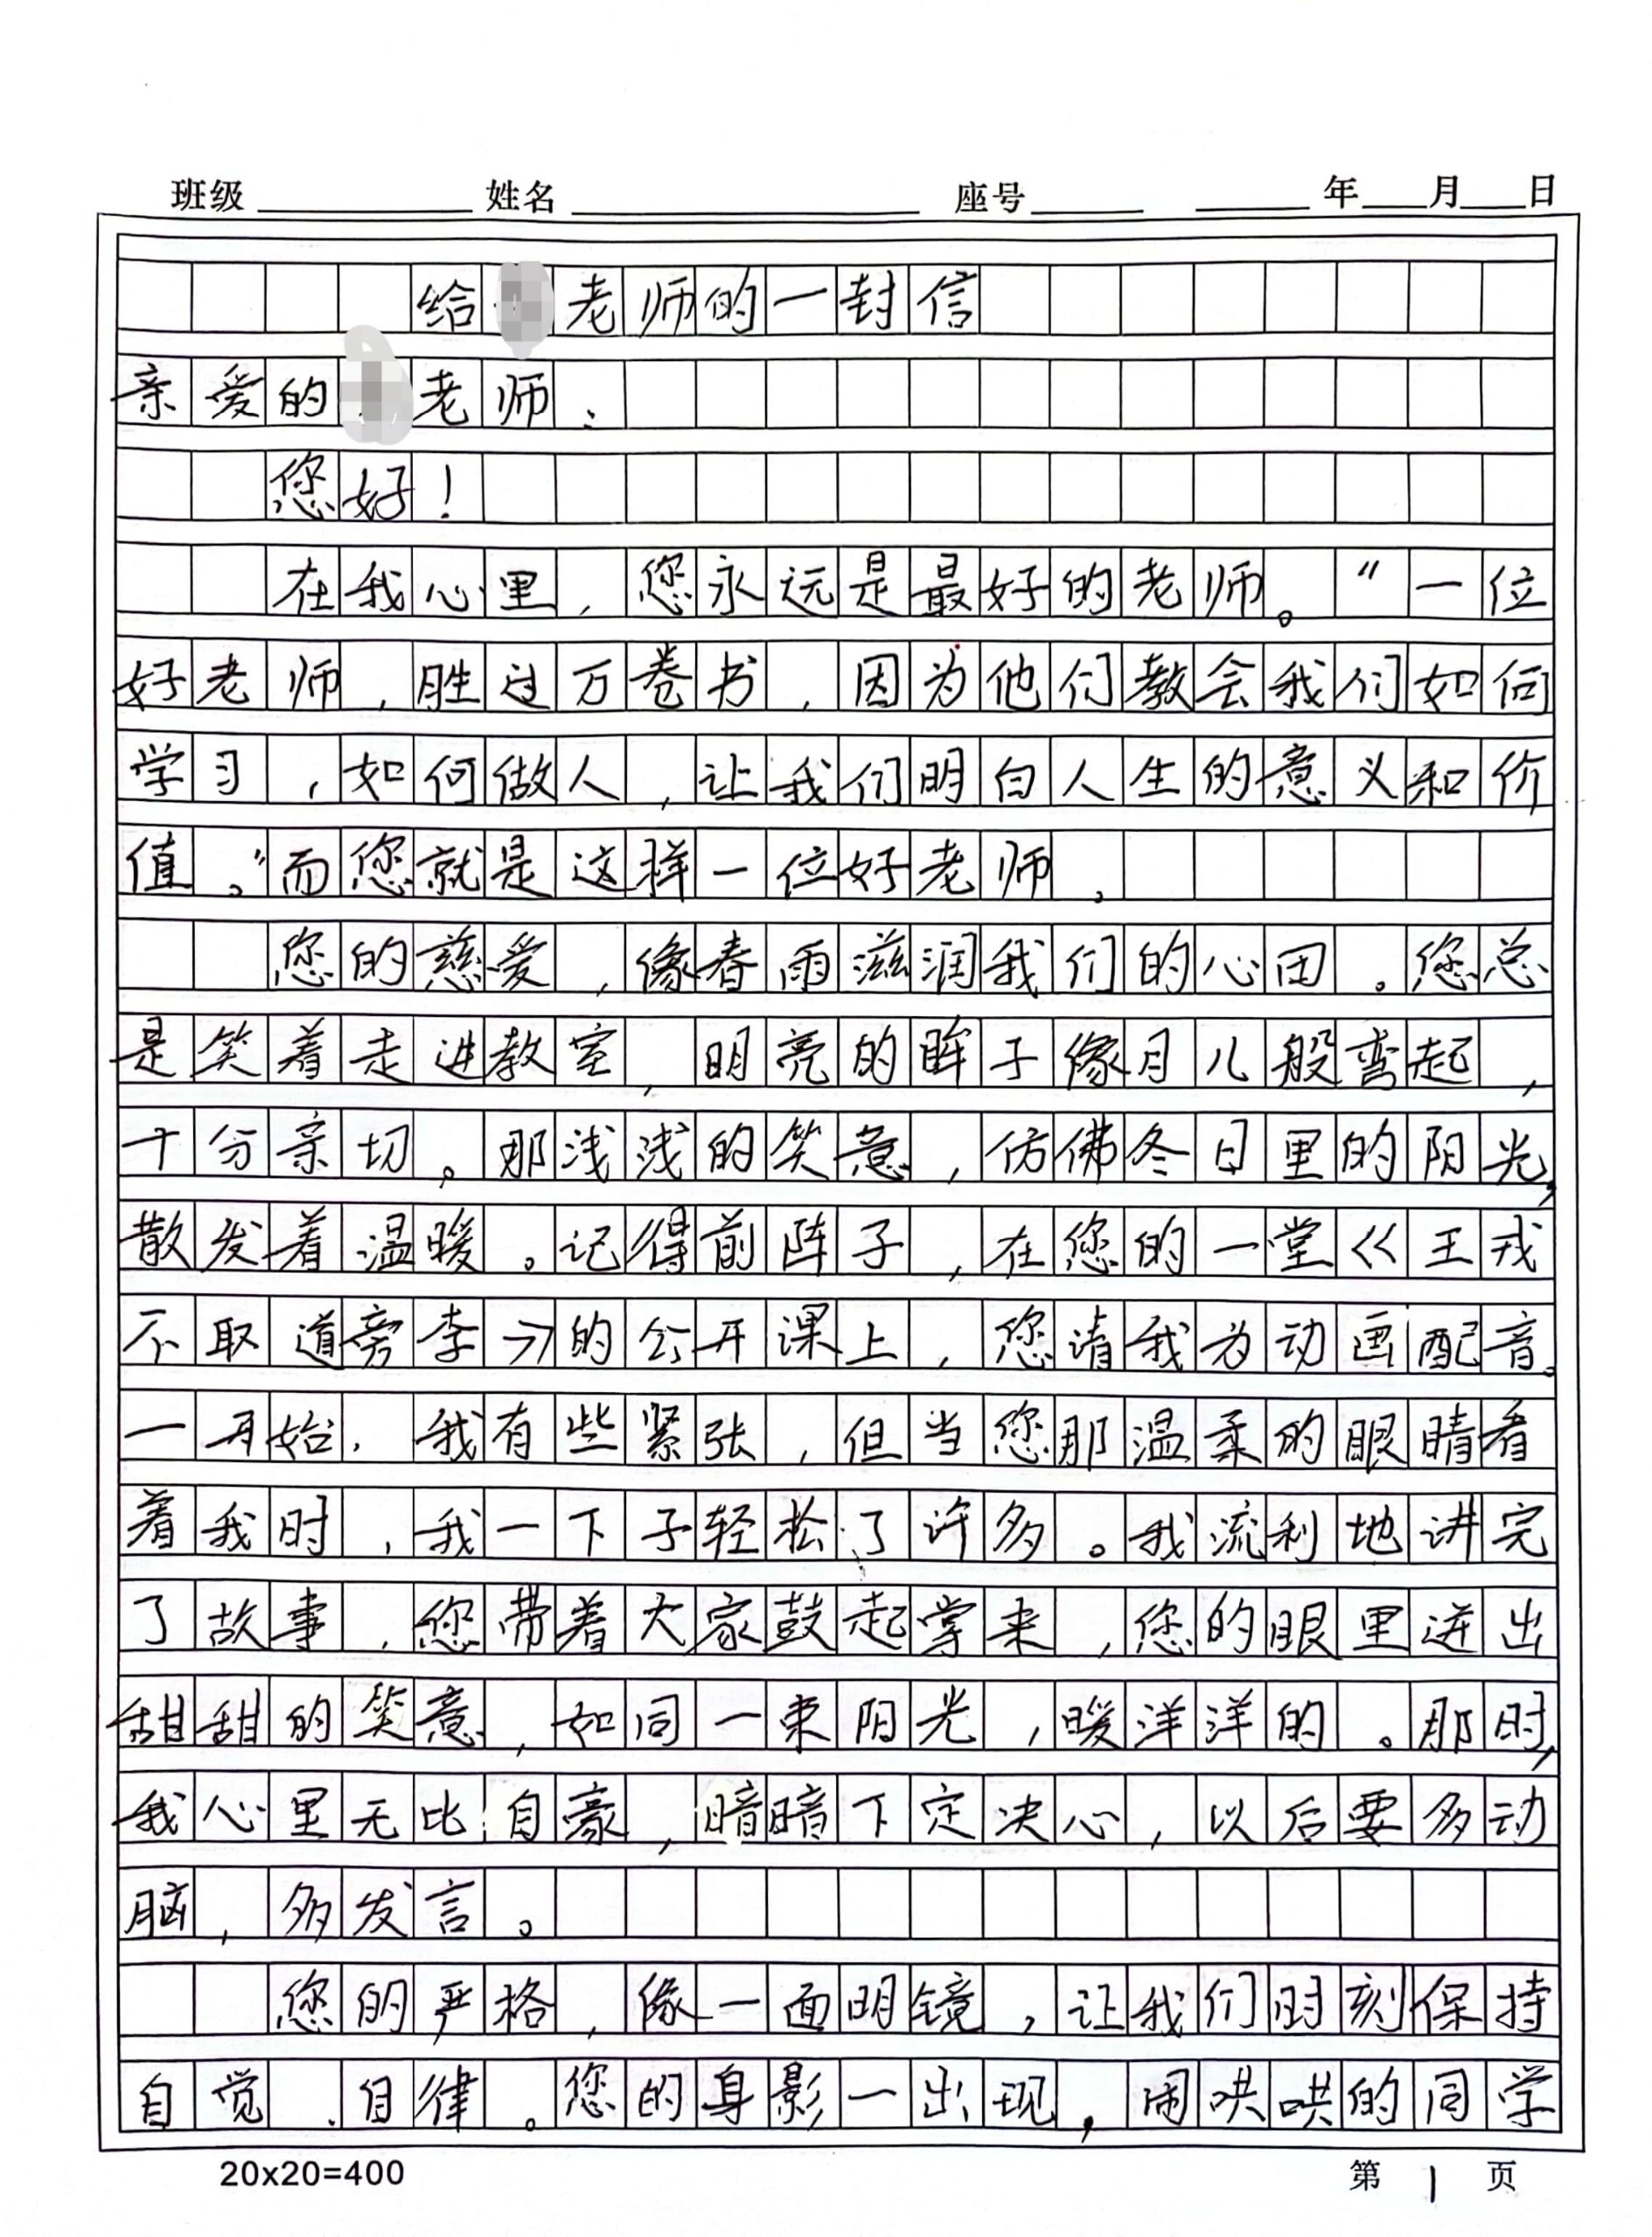 班级 姓名 座号 年 月 日
给 老师的一封信
亲爱的 老师：
您好！
在我心里，您永远是最好的老师。“一位
好老师，胜过万卷书，因为他们教会我们如何
学习，如何做人，让我们明白人生的意义和价
值。”而您就是这样一位好老师。
您的慈爱，像春雨滋润我们的心田。您总
是笑着走进教室，明亮的眸子像月儿般弯起，
十分亲切。那浅浅的笑意，仿佛冬日里的阳光，
散发着温暖。记得前阵子，在您的一堂《王戎
不取道旁李》的公开课上，您请我为动画配音。
一开始，我有些紧张，但当您那温柔的眼睛看
着我时，我一下子轻松了许多。我流利地讲完
了故事，您带着大家鼓起掌来，您的眼里迸出
甜甜的笑意，如同一束阳光，暖洋洋的。那时，
我心里无比自豪，暗暗下定决心，以后要多动
脑，多发言。
您的严格，像一面明镜，让我们时刻保持
自觉、自律。您的身影一出现，闹哄哄的同学
20x20=400 第 1 页